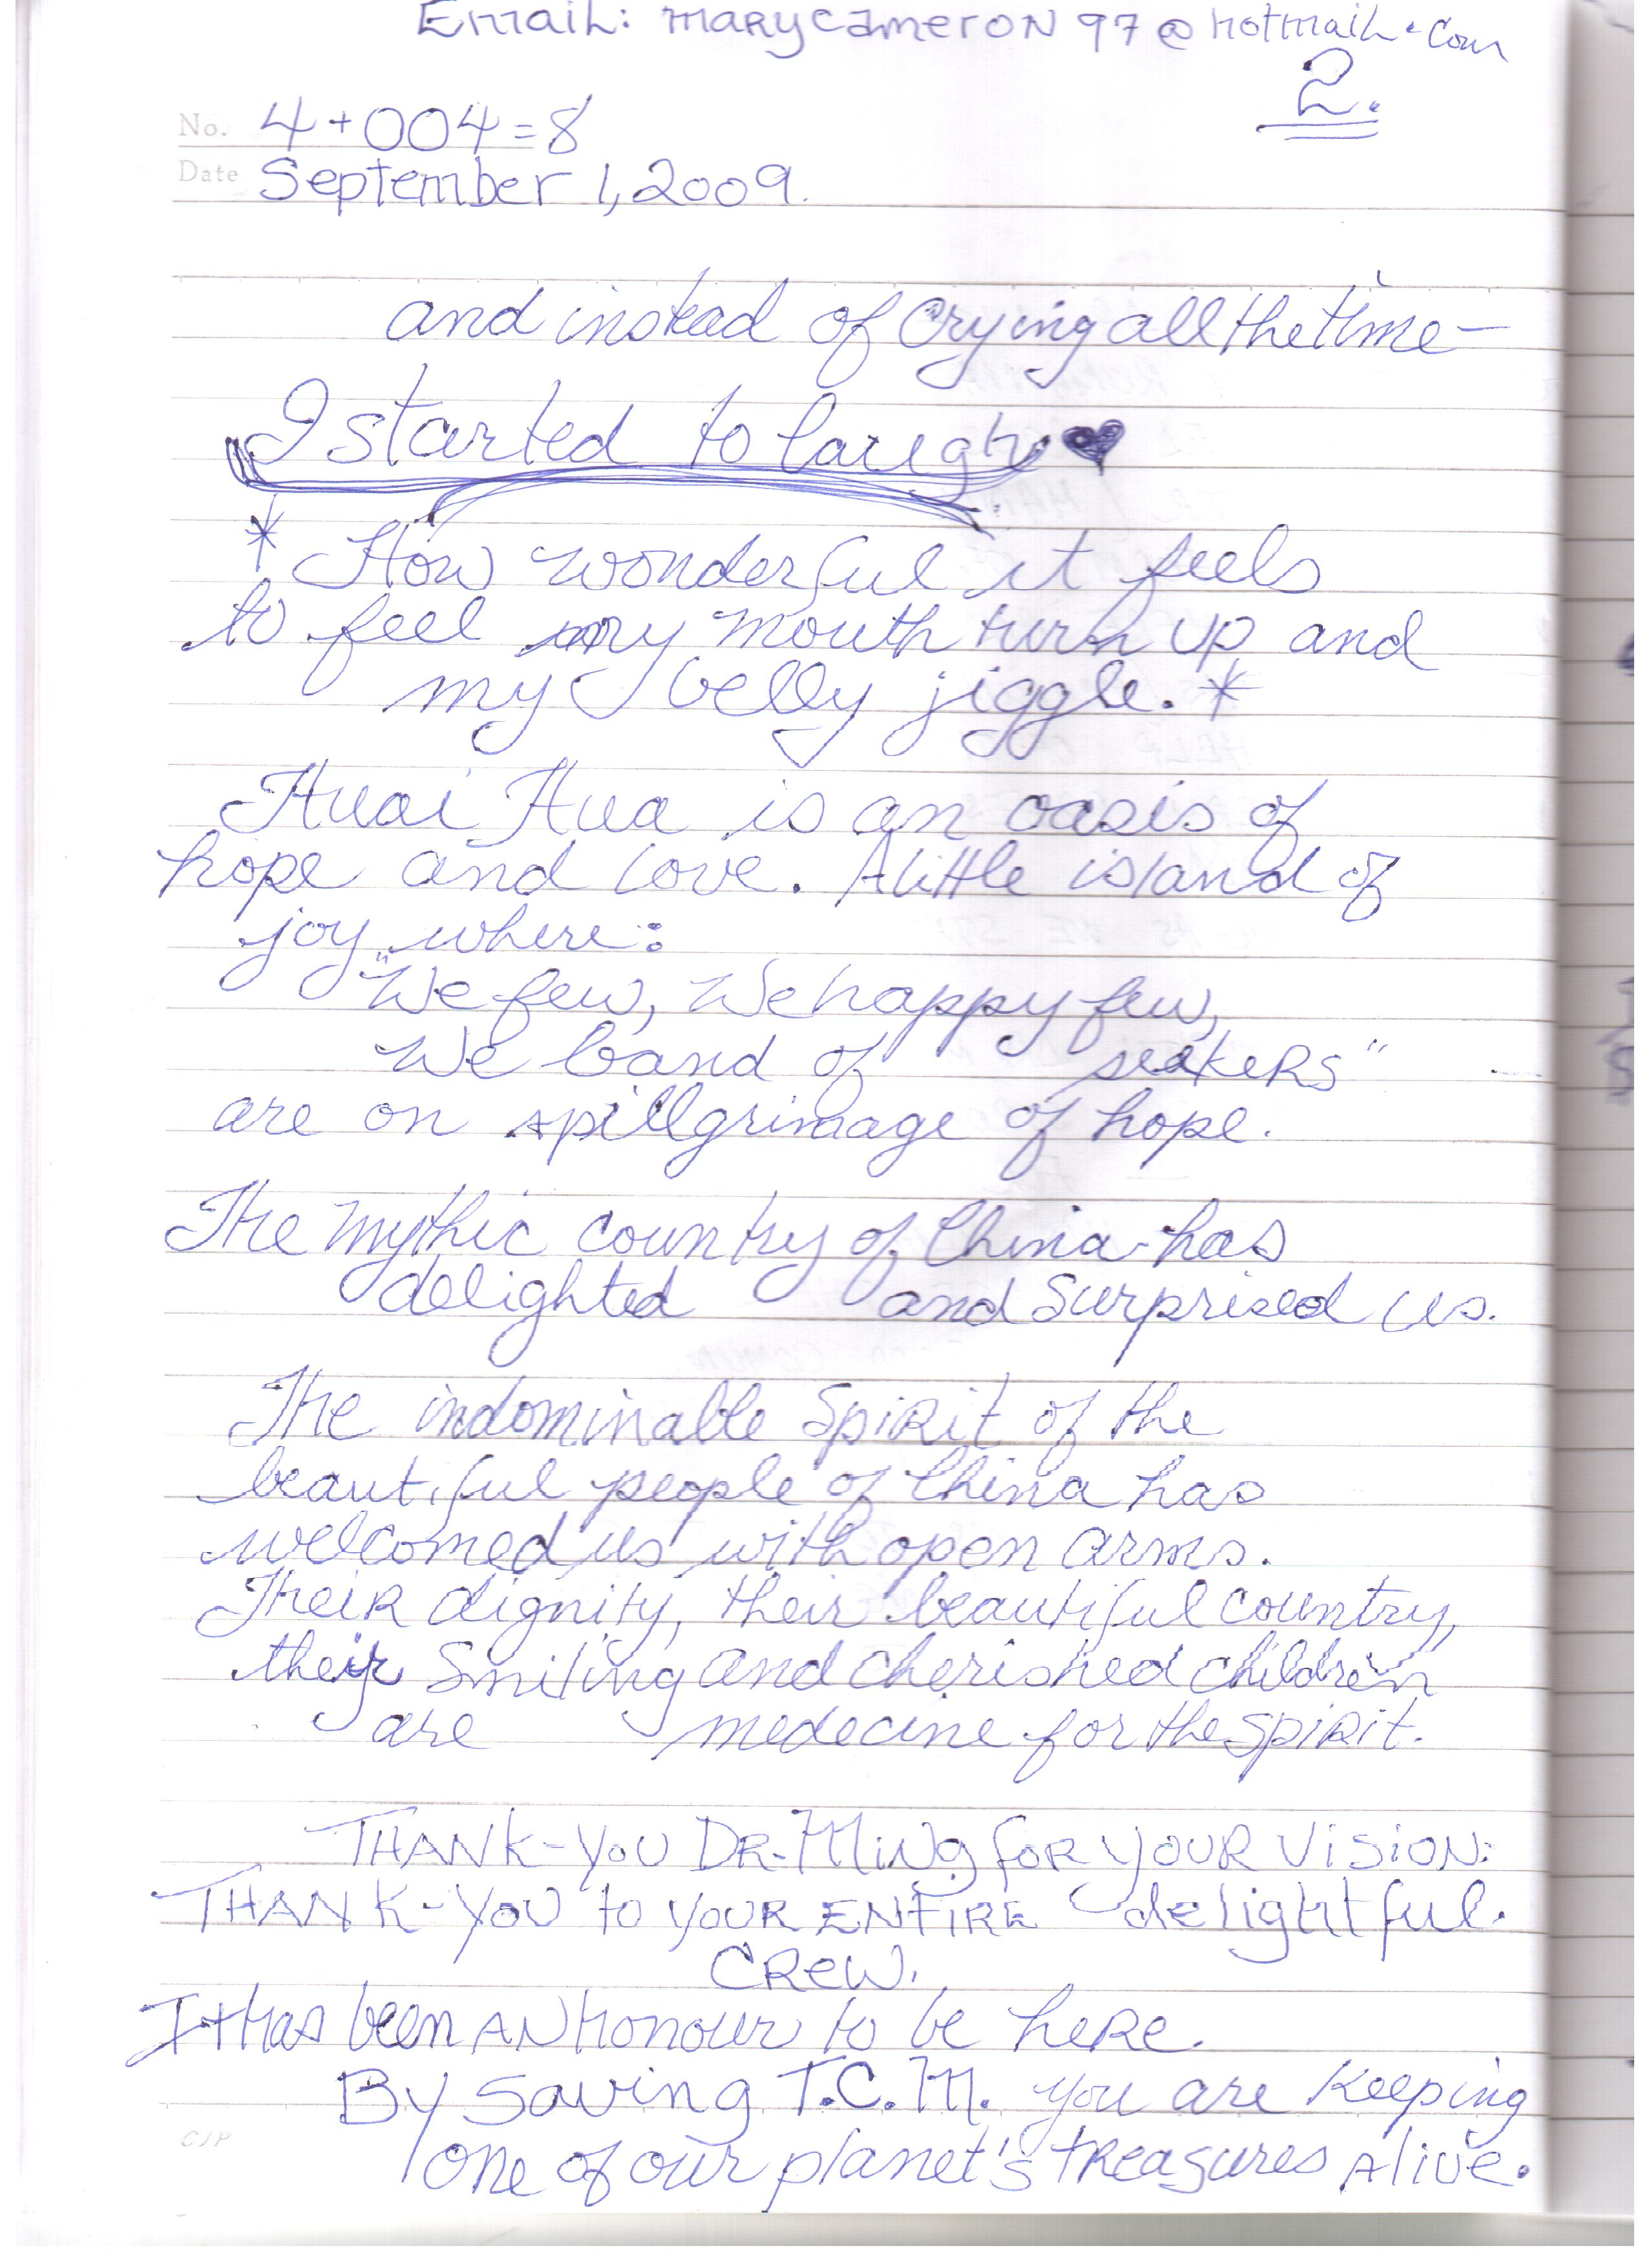 Email: marycameron97@hotmail.com
2.
No. 4+004=8
Date September 1, 2009.
and instead of Crying all the time—
I started to laugh ♥
* How wonderful it feels
to feel my mouth turn up and
my belly jiggle. *
Huai Hua is an oasis of
hope and love. A little island of
joy where:
"We few, We happy few,
We band of seekers"
are on a pillgrimage of hope.
The Mythic country of China has
delighted and Surprised us.
The indominable Spirit of the
beautiful people of China has
welcomed us with open arms.
Their dignity, their beautiful country,
their Smiling and cherished children
are medecine for the Spirit.
THANK-YOU DR. Ming for YOUR VISION.
THANK-YOU to YOUR ENTIRE delightful
CREW.
It has been AN honour to be here.
By Saving T.C.M. you are Keeping
one of our planet's treasures Alive.
CJP